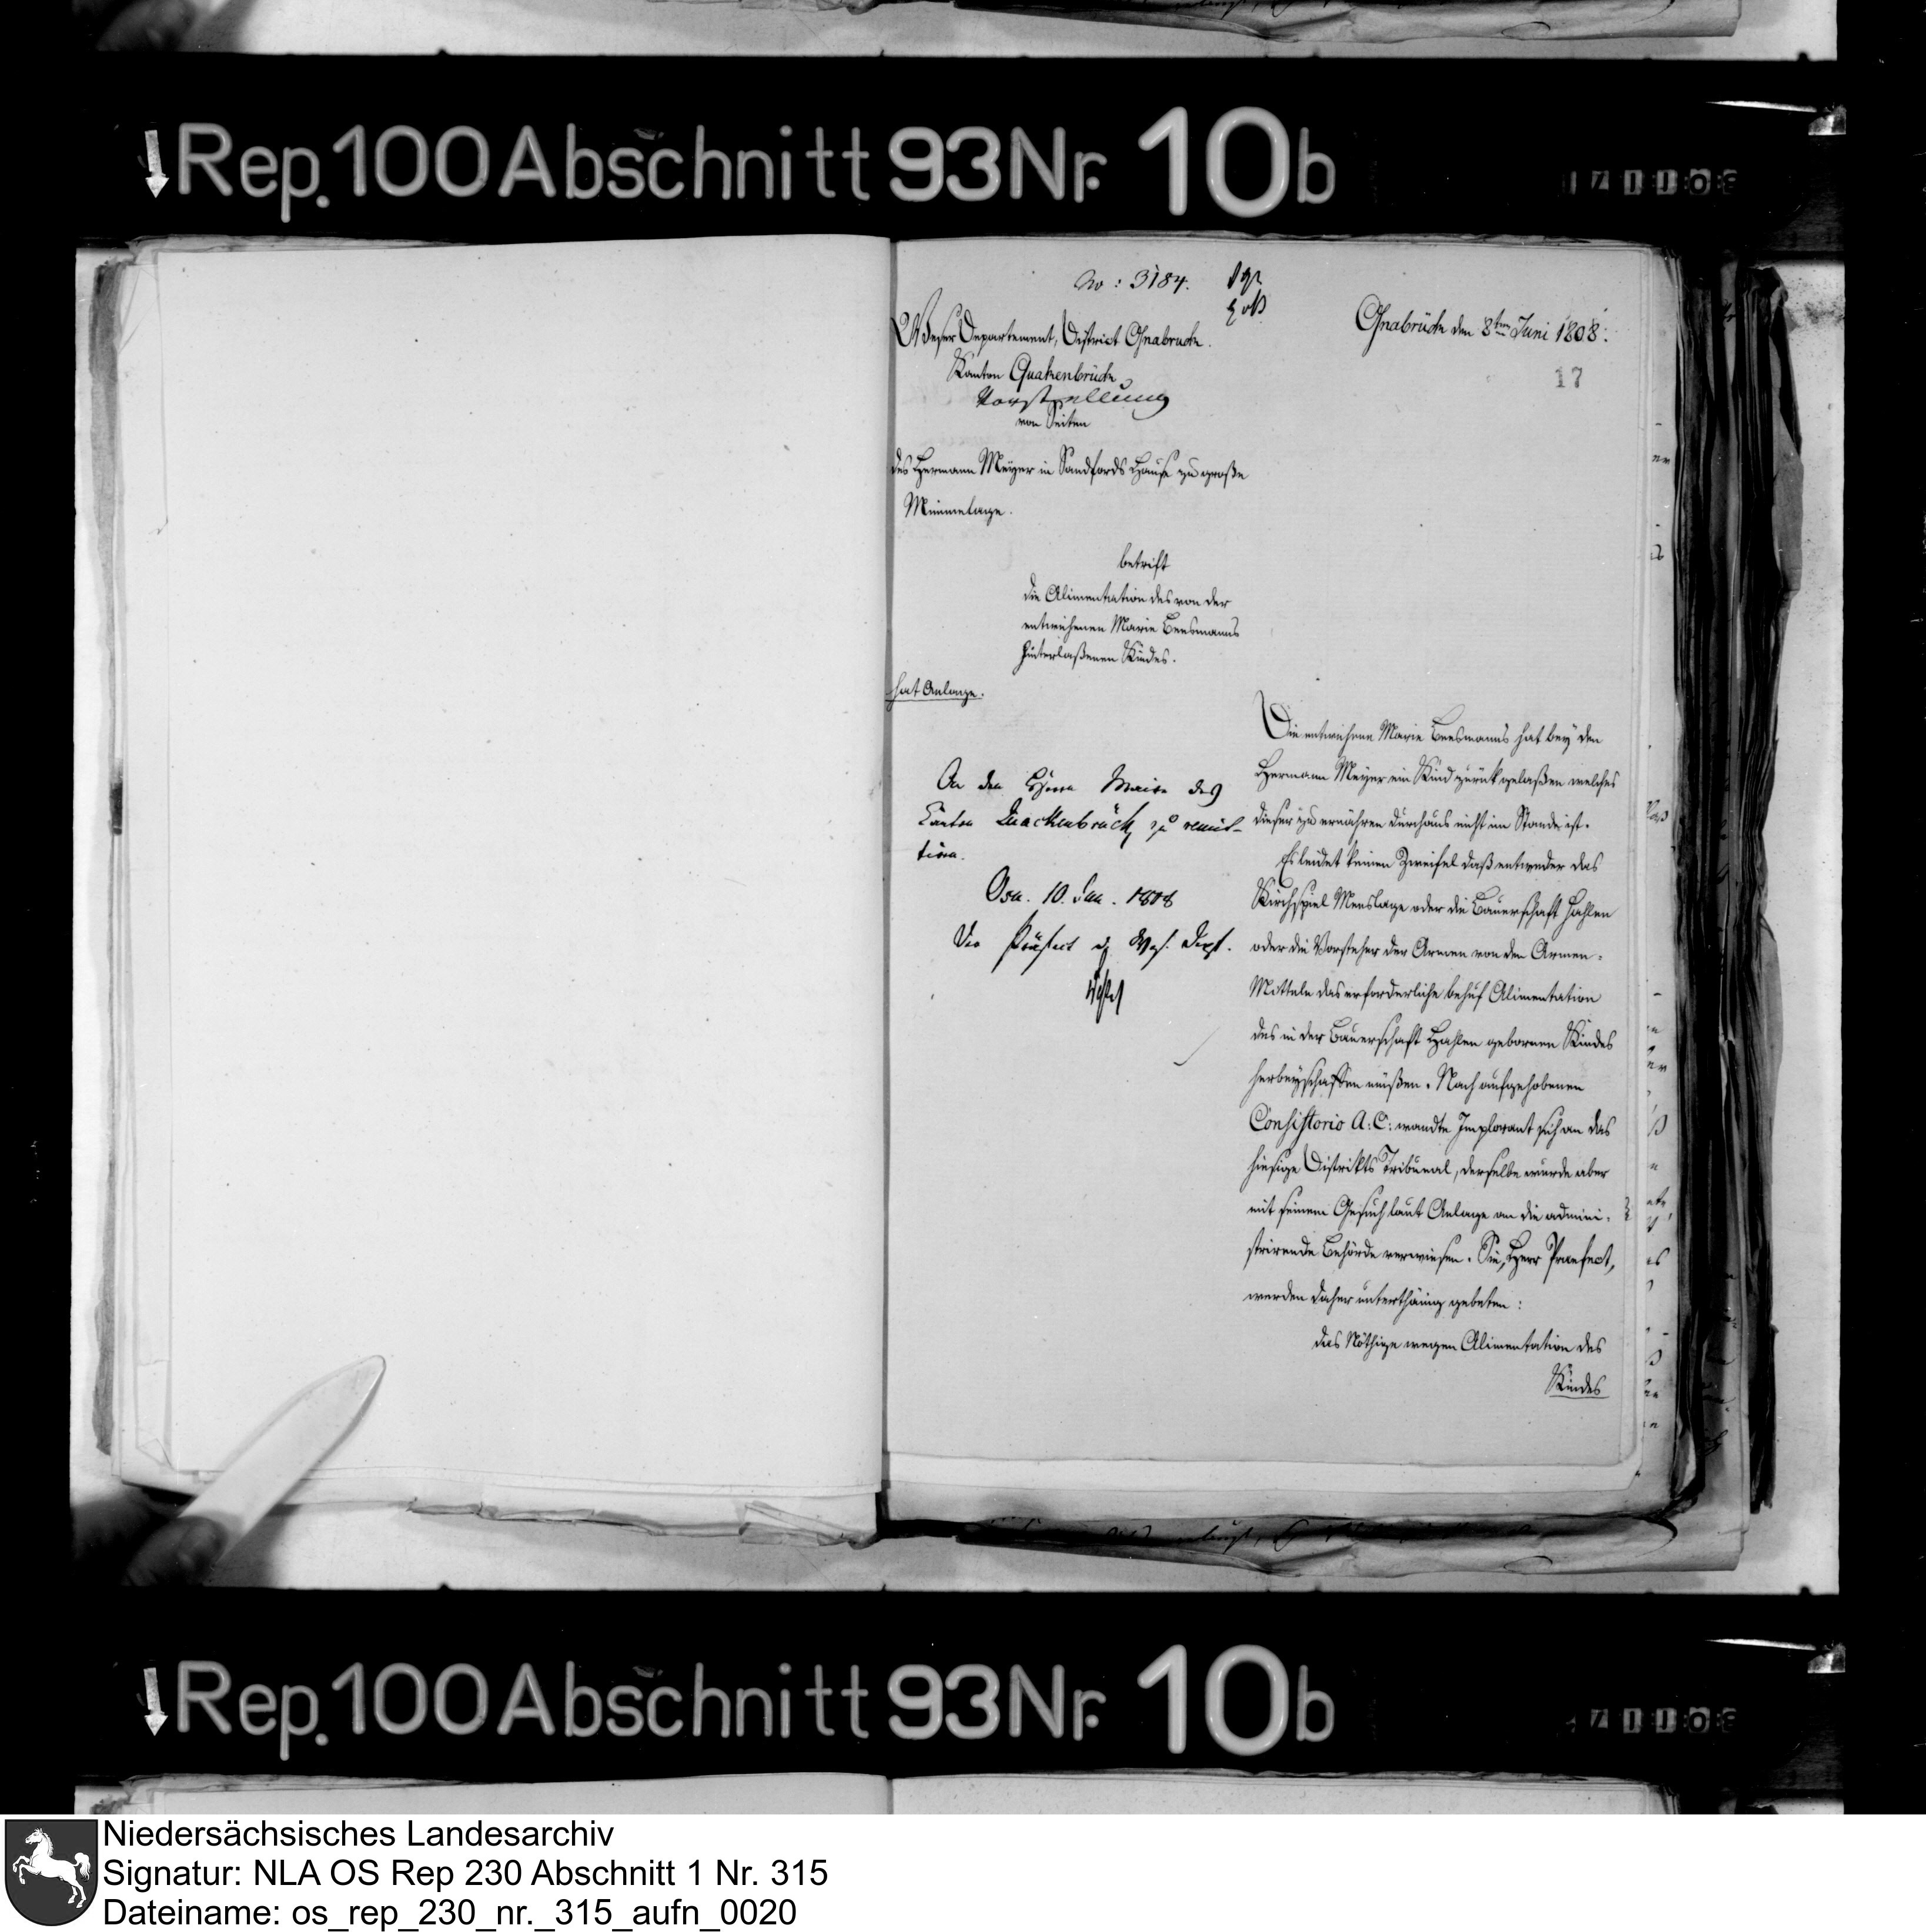 Rep. 100 Abschnitt 93 Nr. 10b
No: 3184.
Osnabrück den 8ten Juni 1808.
17
Weser Departement, District Osnabrück.
Kanton Quakenbrück
Vorstellung
von Seiten
des Hermann Meyer in Sandfords Hause zu große
Mimmelage.
betrift
die Alimentation des von der
entwichenen Marie Beesmanns
hinterlaßenen Kindes.
hat Anlage.
An den Herrn Maire des
Canton Quackenbrück zu remit-
tiren.
Osn. 10. Jun. 1808
Der Präfect d. Ws. Dept.
Die entwichene Marie Beesmanns hat bey den
Hermann Meyer ein Kind zurückgelaßen welches
dieser zu ernähren durchaus nicht im Stande ist.
Es leidet keinen Zweifel daß entweder das
Kirchspiel Menslage oder die Bauerschaft Hahlen
oder die Vorsteher der Armen von den Armen-
Mitteln das erforderliche behuf Alimentation
des in der Bauerschaft Hahlen gebornen Kindes
herbeyschaffen müßen. Nach aufgehobenen
Consistorio A: C: wandte Implorant sich an das
hiesige Distrikts Tribunal, derselbe wurde aber
mit seinem Gesuch laut Anlage an die admini-
strirende Behörde verwiesen. Sie, Herr Praefect,
werden daher unterthänig gebeten:
das Nöthige wegen Alimentation des
Kindes
Rep. 100 Abschnitt 93 Nr. 10b
Niedersächsisches Landesarchiv
Signatur: NLA OS Rep 230 Abschnitt 1 Nr. 315
Dateiname: os_rep_230_nr._315_aufn_0020